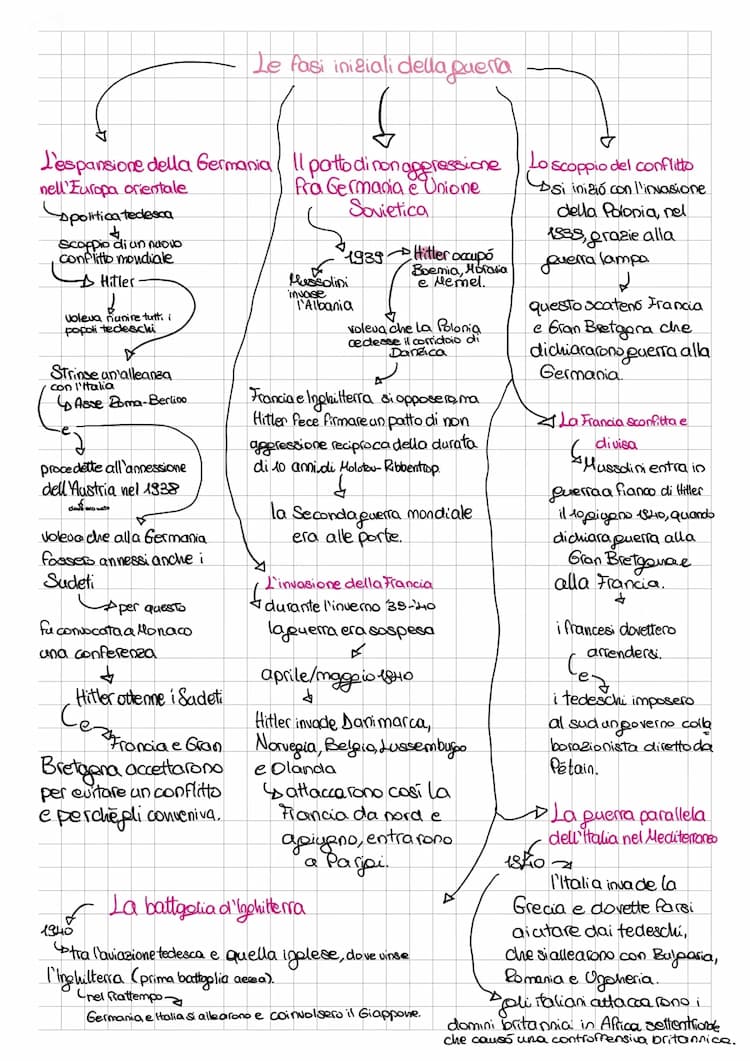 Le fasi iniziali della guerra
L'espansione della Germania
nell'Europa orientale
politica tedesca
scoppio di un nuovo
conflitto mondiale
Hitler
voleva riunire tutti i
popoli tedeschi
Strinse un'alleanza
con l'Italia
Asse Roma-Berlino
e
procedette all'annessione
dell'Austria nel 1938
voleva che alla Germania
fossero annessi anche i
Sudeti
per questo
fu convocata a Monaco
una conferenza
Hitler ottenne i Sudeti
e
Francia e Gran
Bretagna accettarono
per evitare un conflitto
e perchè gli conveniva.
Il patto di non aggressione
fra Germania e Unione
Sovietica
1939
Hitler occupó
Boemia, Moravia
e Memel.
Mussolini
invase
l'Albania
voleva che la Polonia
cedesse il corridoio di
Danzica
Francia e Inghilterra si opposero, ma
Hitler fece firmare un patto di non
aggressione reciproca della durata
di 10 anni, di Molotov-Ribbentrop.
la Seconda guerra mondiale
era alle porte.
L'invasione della Francia
durante l'inverno 39-'40
la guerra era sospesa
aprile/maggio 1940
Hitler invade Danimarca,
Norvegia, Belgio, Lussemburgo
e Olanda
attaccarono così la
Francia da nord e
a giugno, entrarono
a Parigi.
Lo scoppio del conflitto
si inizió con l'invasione
della Polonia, nel
1939, grazie alla
guerra lampo
questo scatenó Francia
e Gran Bretagna che
dichiararono guerra alla
Germania.
La Francia sconfitta e
divisa
Mussolini entra in
guerra a fianco di Hitler
il 10 giugno 1940, quando
dichiara guerra alla
Gran Bretagna e
alla Francia.
i francesi dovettero
arrendersi.
e
i tedeschi imposero
al sud un governo colla
borazionista diretto da
Pétain.
La guerra parallela
dell'Italia nel Mediterraneo
1940
l'Italia invade la
Grecia e dovette farsi
aiutare dai tedeschi,
che si allearono con Bulgaria,
Romania e Ungheria.
gli italiani attaccarono i
domini britannici in Africa settentrionale
che causó una controffensiva britannica.
La battaglia d'Inghilterra
1940
tra l'aviazione tedesca e quella inglese, dove vinse
l'Inghilterra (prima battaglia aerea).
nel frattempo
Germania e Italia si allearono e coinvolsero il Giappone.